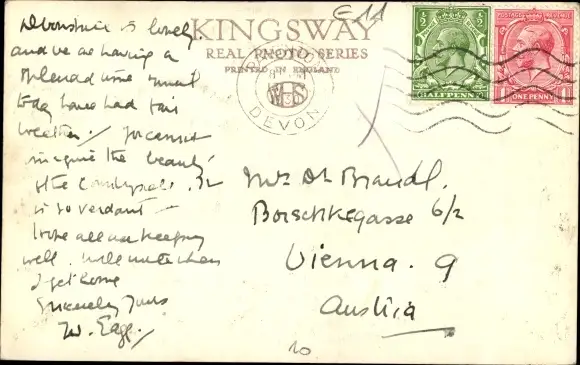 Devonshire is lovely
and we are having a
splendid time
today have had fair
weather / You cannot
imagine the beauty
of the countryside. It
is so verdant —
hope all are keeping
well. will write when
I get home
Sincerely Yours
W.
KINGSWAY
REAL PHOTO SERIES
PRINTED IN ENGLAND
E 11
DEVON
HALFPENNY
POSTAGE REVENUE
ONE PENNY
Mrs Dr Brandl.
Borschkegasse 6/2
Vienna. 9
Austria
10